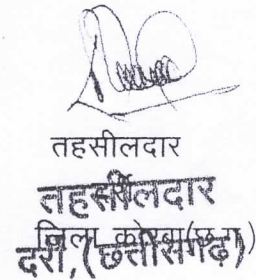 तहसीलदार
तहसीलदार
जिला कोरबा (छ.ग.)
दर्री, (छत्तीसगढ़)